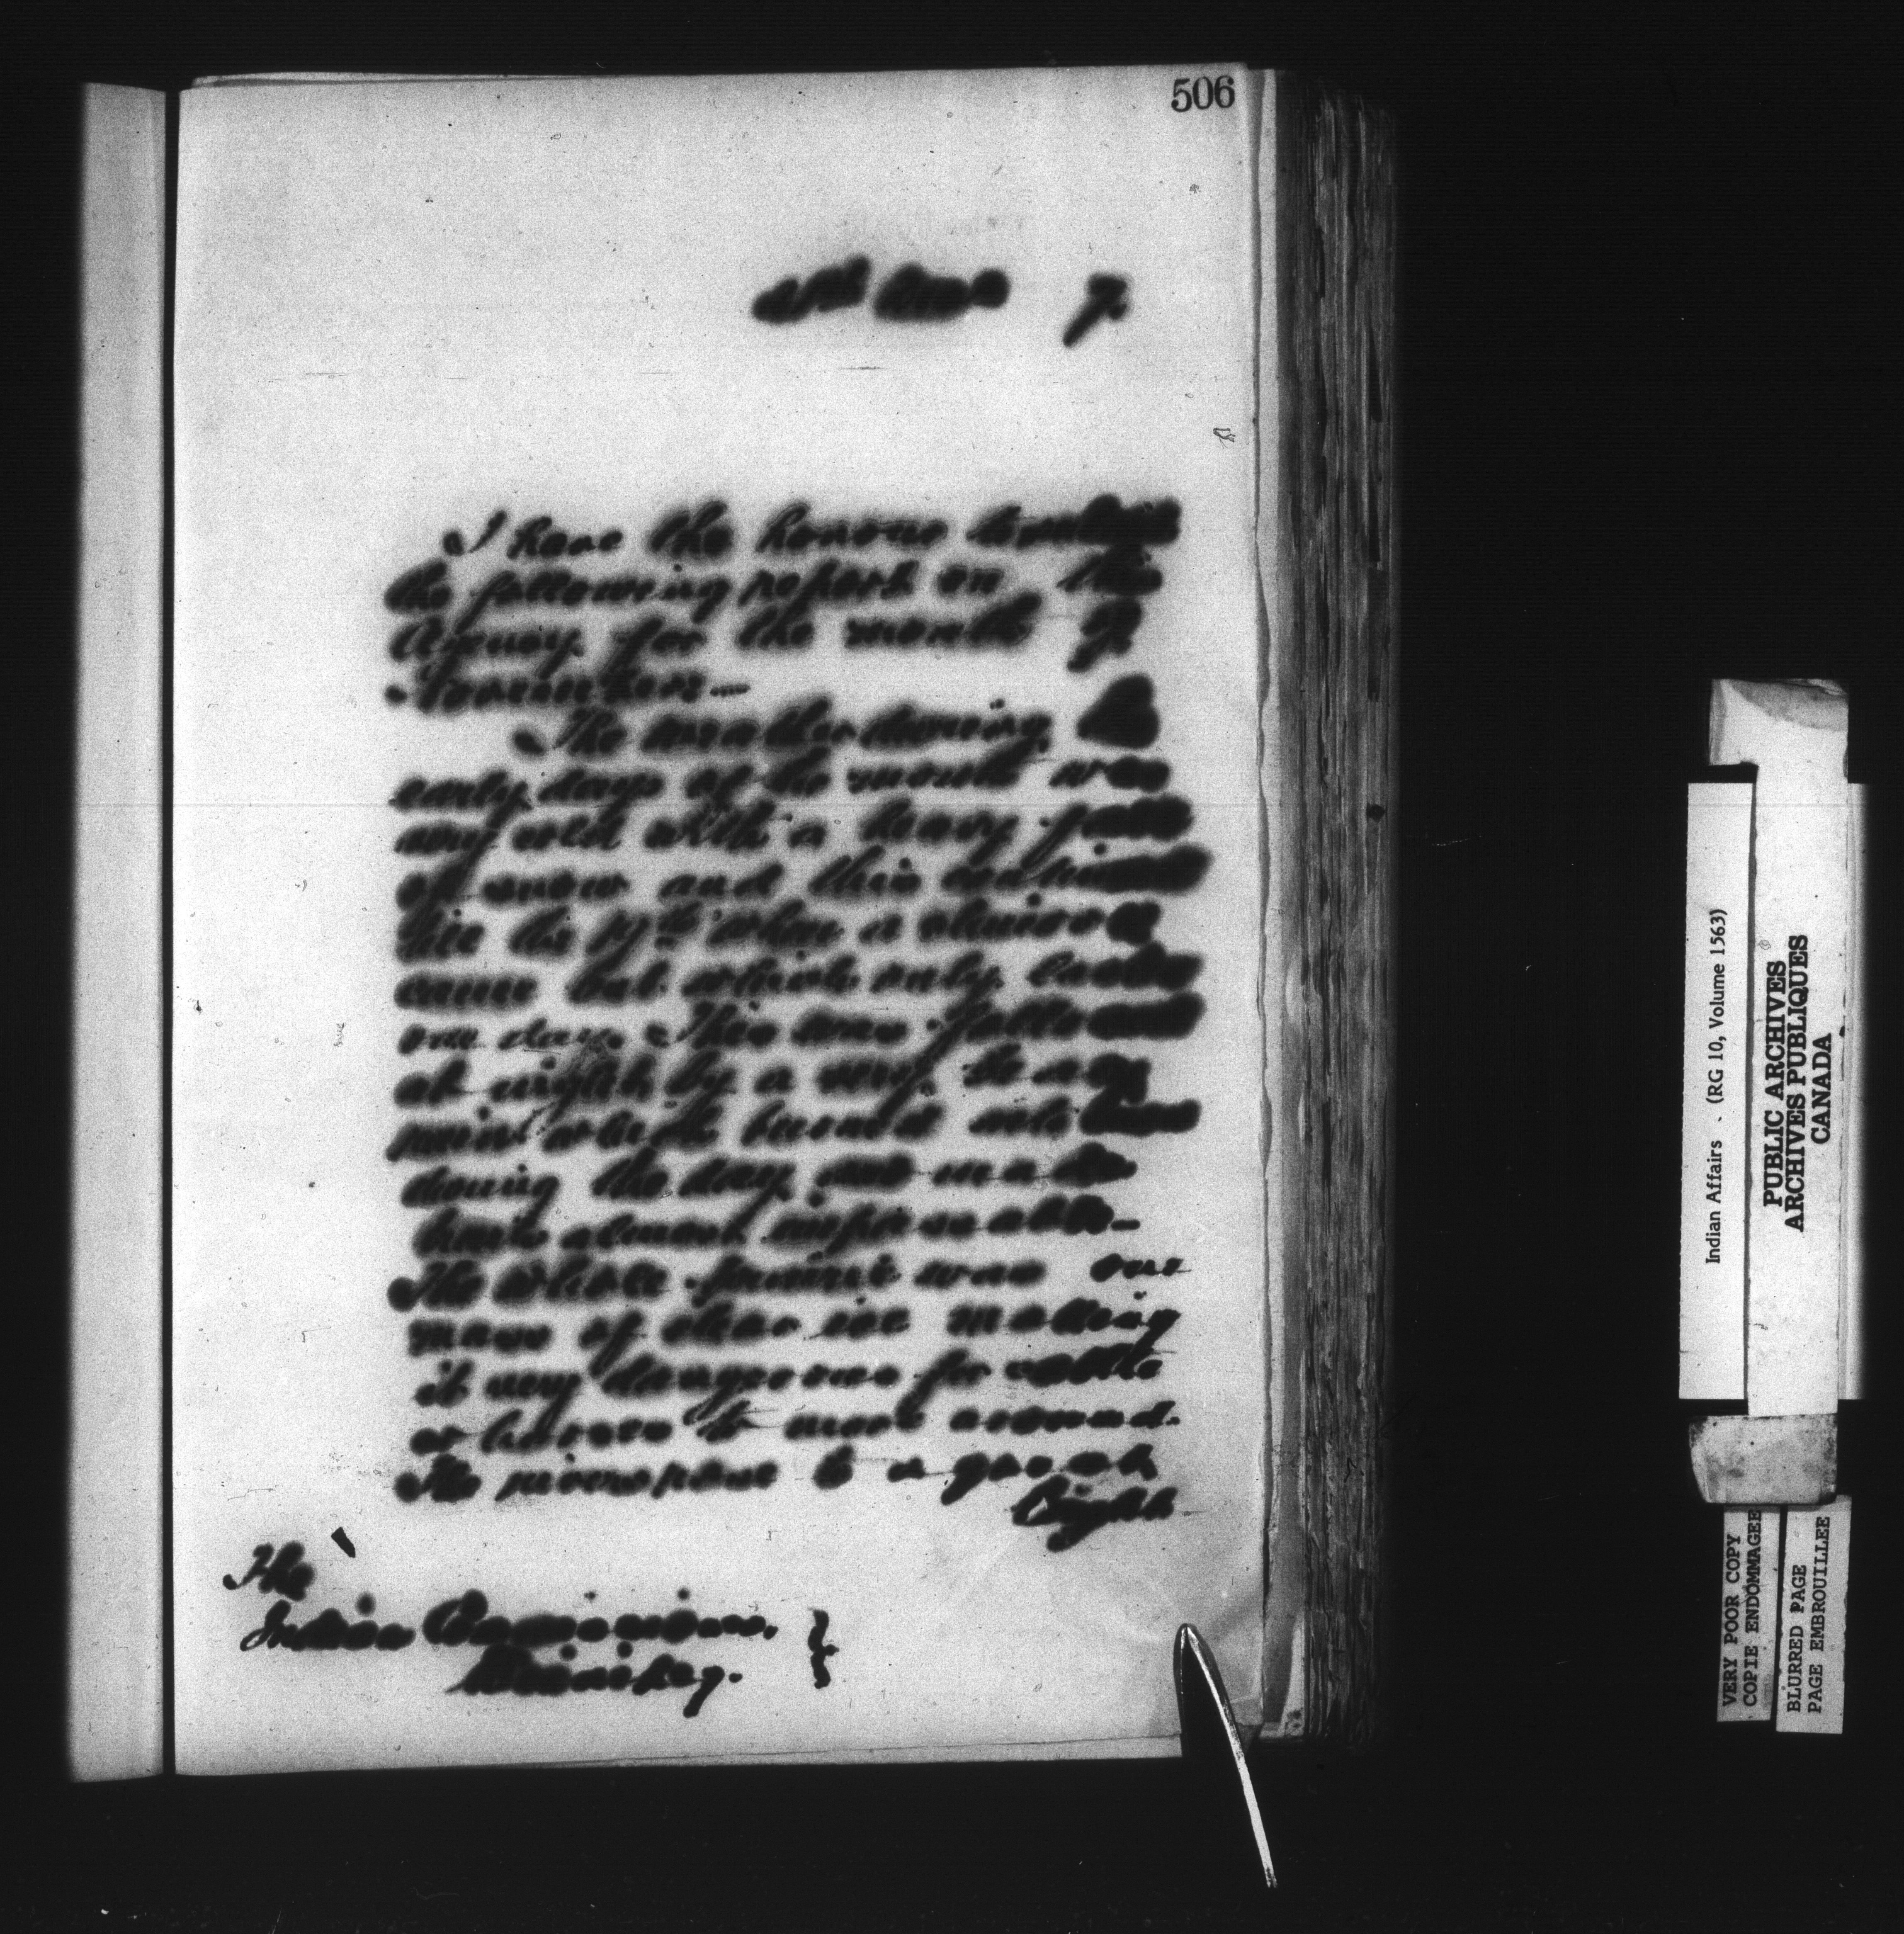 506
I have the honour to submit
the following report on this
Agency for the month of
November.
The weather during the
early days of the month was
very cold with a heavy fall
of snow and this continued
till the 17th when a chinook
came but which only lasted
one day. This was followed
at night by a very heavy
rain which turned into
during the day and made
travel almost impossible
The whole was one
mass of clear ice making
it very dangerous for cattle
or horses to move around.
The rivers to a great
height
The
Indian Commissioner.
Winnipeg.
Indian Affairs . (RG 10, Volume 1563)
PUBLIC ARCHIVES
ARCHIVES PUBLIQUES
CANADA
VERY POOR COPY
COPIE ENDOMMAGEE
BLURRED PAGE
PAGE EMBROUILLEE